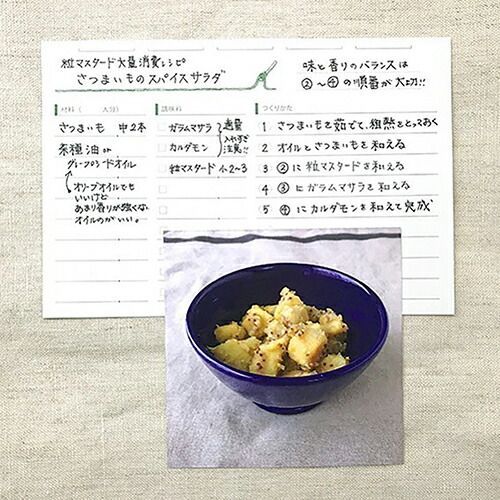 粒マスタード大量消費レシピ
さつまいものスパイスサラダ
味と香りのバランスは
②〜④の順番が大切!!
材料（　　人分）
さつまいも　中2本
菜種油 or
グレープシードオイル
オリーブオイルでも
いいけど
あまり香りが強くない
オイルのがいい。
調味料
ガラムマサラ
カルダモン
適量
入れすぎ
注意!!
粒マスタード 小2~3
つくりかた
1 さつまいもを茹でて、粗熱をとっておく
2 オイルとさつまいもを和える
3 ②に粒マスタードを和える
4 ③にガラムマサラを和える
5 ④にカルダモンを和えて完成